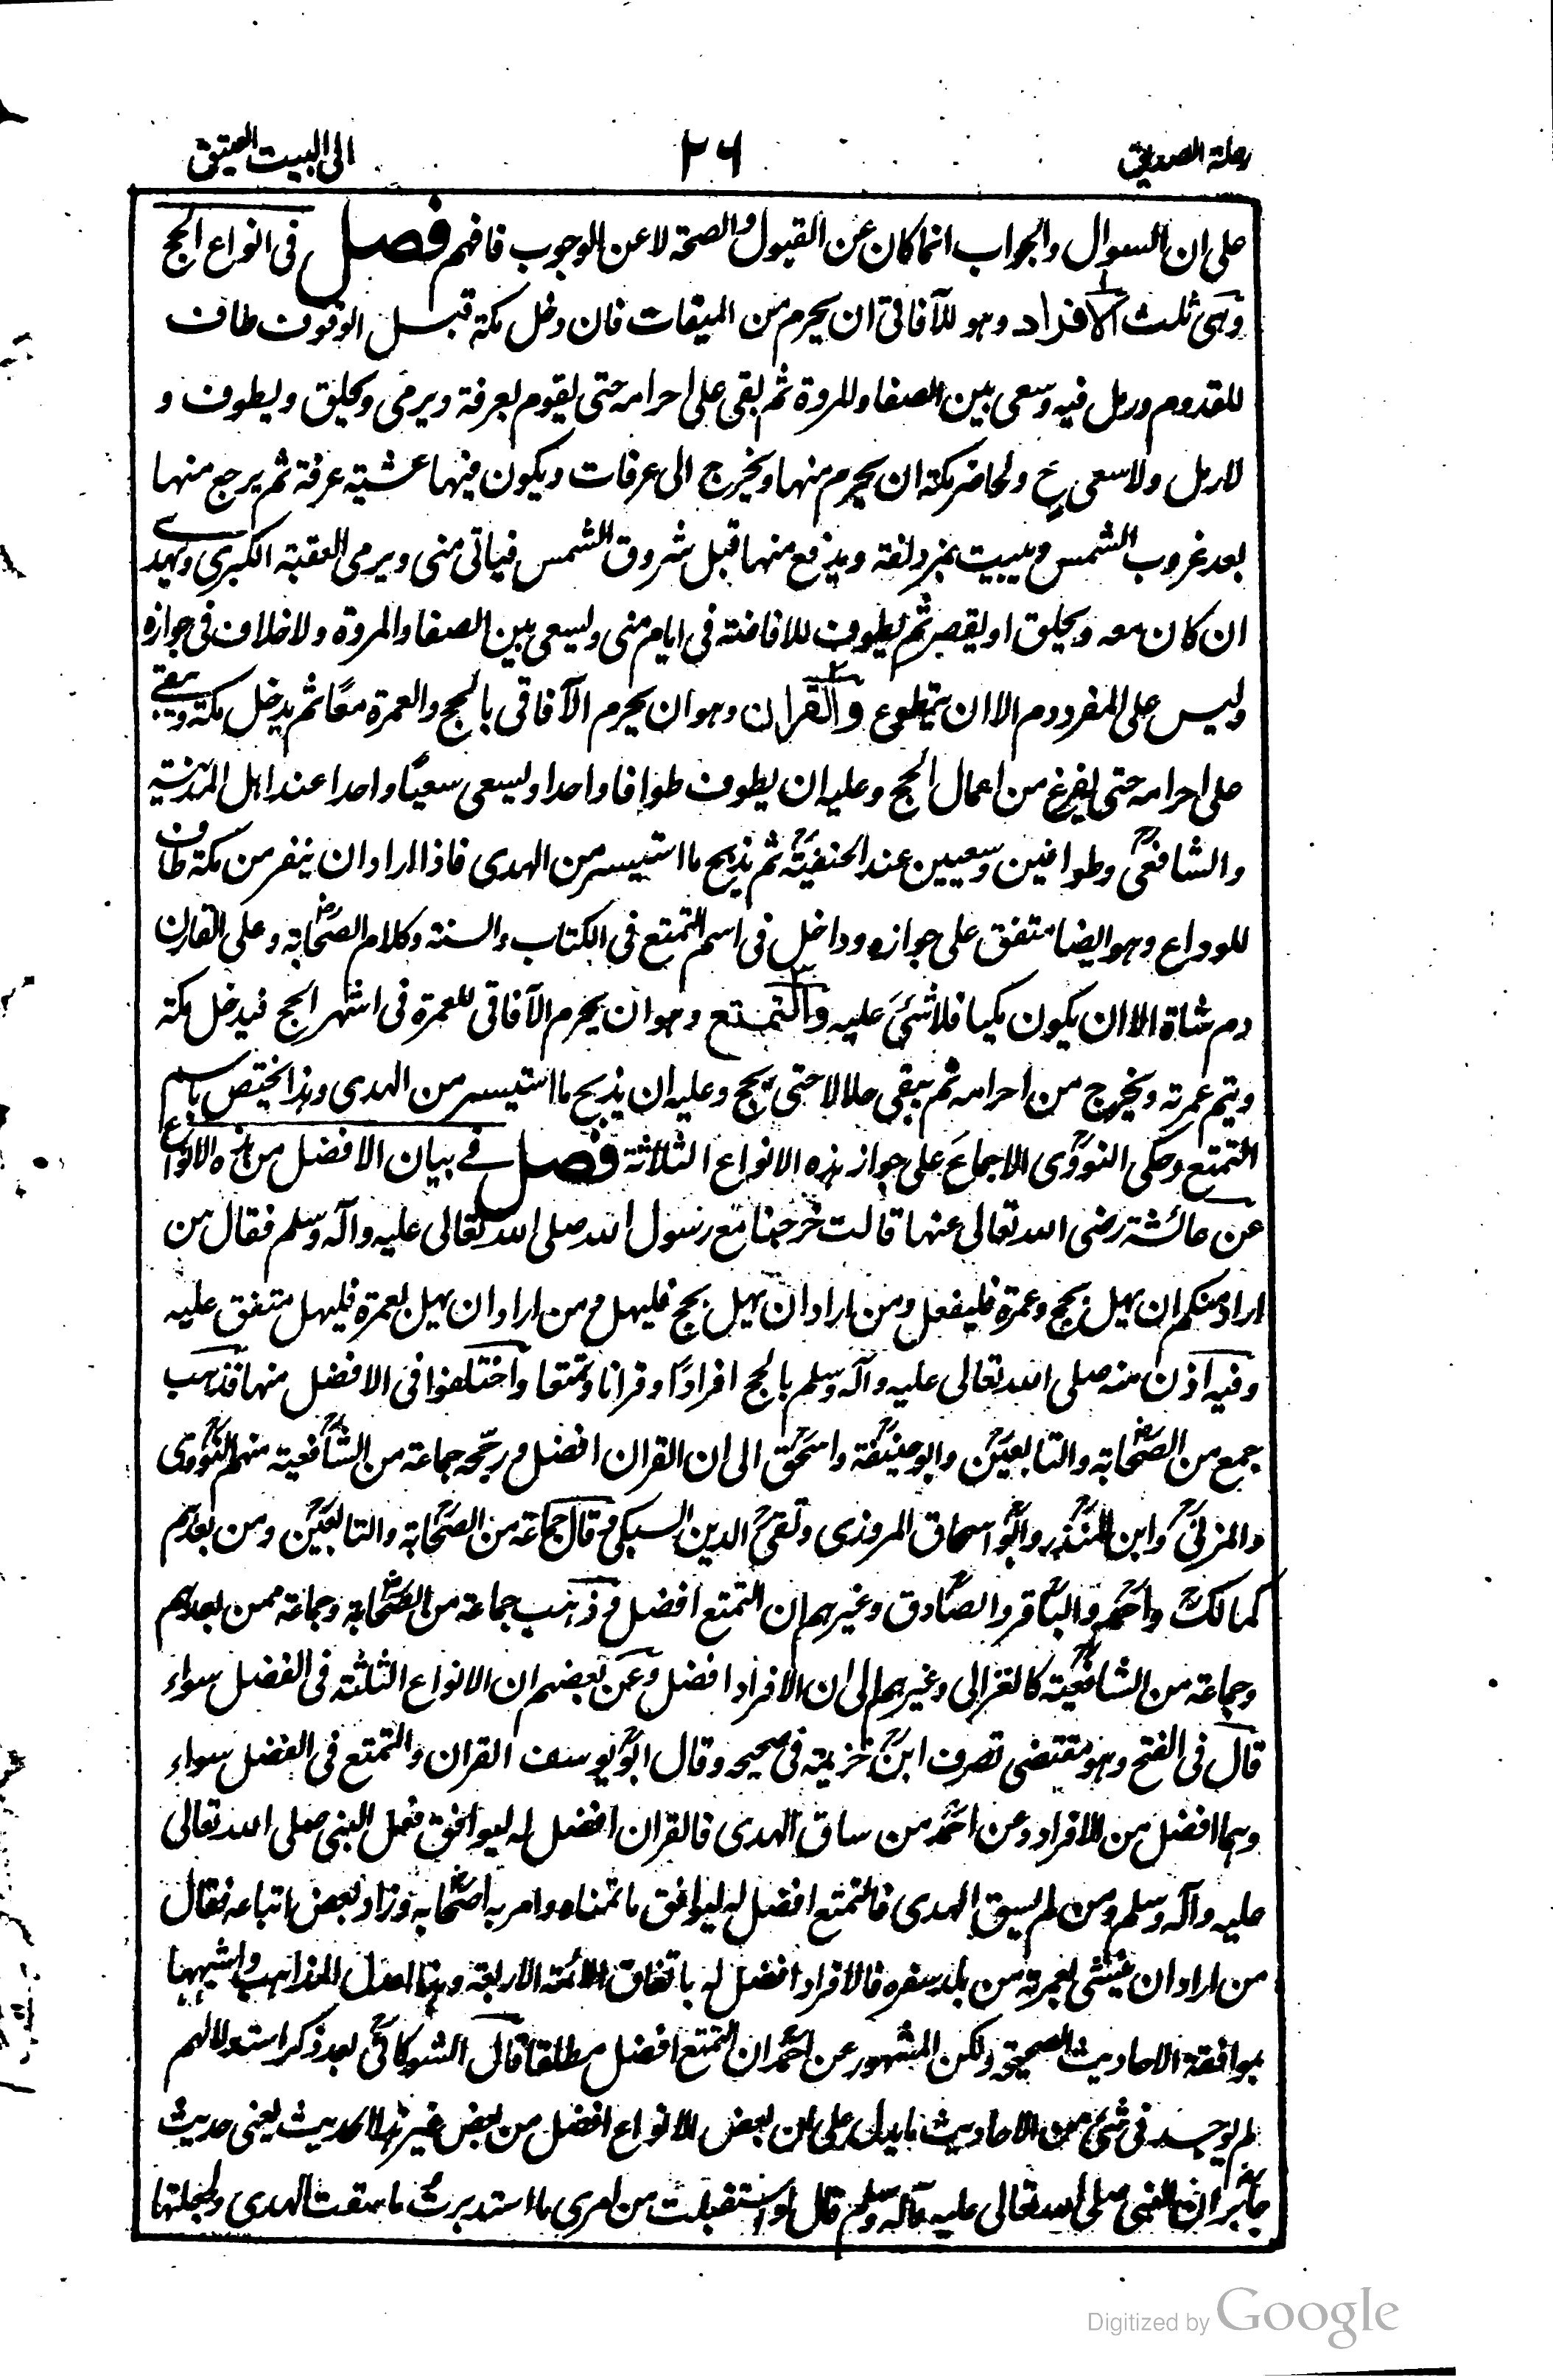 رحلة الصديق
٢٦
الى البيت العتيق
على ان السوال والجواب انما كان عن القبول والصحة لا عن الوجوب فافهم فصل فى انواع الحج
وهى ثلث ١ الافراد وهو للآفاقى ان يحرم من الميقات فان دخل مكة قبل الوقوف طاف
للقدوم ورمل فيه وسعى بين الصفا والمروة ثم بقى على احرامه حتى يقوم بعرفة ويرمى ويحلق ويطوف و
لا رمل ولا سعى ح ولحاضر مكة ان يحرم منها ويخرج الى عرفات ويكون فيها عشية عرفة ثم يرجع منها
بعد غروب الشمس ويبيت بمزدلفة ويدفع منها قبل شروق الشمس فياتى منى ويرمى العقبة الكبرى ويهدى
ان كان معه ويحلق او يقصر ثم يطوف للافاضة فى ايام منى ويسعى بين الصفا والمروة ولا خلاف فى جوازه
وليس على المفرد دم الا ان يتطوع ٢ والقران وهو ان يحرم الآفاقى بالحج والعمرة معًا ثم يدخل مكة ويبقى
على احرامه حتى يفرغ من اعمال الحج وعليه ان يطوف طوافا واحدا ويسعى سعيًا واحدا عند اهل المدينة
والشافعى وطوافين وسعيين عند الحنفية ثم يذبح ما استيسر من الهدى فاذا اراد ان ينفر من مكة طاف
للوداع وهو ايضا متفق على جوازه وداخل فى اسم التمتع فى الكتاب والسنة وكلام الصحابة وعلى القارن
دم شاة الا ان يكون مكيا فلا شئ عليه ٣ والتمتع وهو ان يحرم الآفاقى للعمرة فى اشهر الحج فيدخل مكة
ويتم عمرته ويخرج من احرامه ثم يبقى حلالا حتى يحج وعليه ان يذبح ما استيسر من الهدى وهذا يختص باسم
التمتع وحكى النووى الاجماع على جواز هذه الانواع الثلاثة فصل فے بيان الافضل من هذه الانواع
عن عائشة رضى الله تعالى عنها قالت خرجنا مع رسول الله صلى الله تعالى عليه وآله وسلم فقال من
اراد منكم ان يهل بحج وعمرة فليفعل ومن اراد ان يهل بحج فليهل ومن اراد ان يهل بعمرة فليهل متفق عليه
وفيه اذن منه صلى الله تعالى عليه وآله وسلم بالحج افرادًا وقرانا وتمتعا واختلفوا فى الافضل منها فذهب
جمع من الصحابة والتابعين وابو حنيفة واسحق الى ان القران افضل ورجحه جماعة من الشافعية منهم النووى
والمزنى وابن المنذر وابو اسحاق المروزى وتقى الدين السبكى وقال جماعة من الصحابة والتابعين ومن بعدهم
كمالك واحمد والباقر والصادق وغيرهم ان التمتع افضل وذهب جماعة من الصحابة وجماعة ممن بعدهم
وجماعة من الشافعية كالغزالى وغيرهم الى ان الافراد افضل وعن بعضهم ان الانواع الثلثة فى الفضل سواء
قال فى الفتح وهو مقتضى تصرف ابن خزيمة فى صحيحه وقال ابو يوسف القران والتمتع فى الفضل سواء
وهما افضل من الافراد وعن احمد من ساق الهدى فالقران افضل له ليوافق فعل النبى صلى الله تعالى
عليه وآله وسلم ومن لم يسق الهدى فالتمتع افضل له ليوافق ما تمناه وامر به اصحابه وزاد بعض اتباعه فقال
من اراد ان ينشئ لعمرته من بلد سفره فالافراد افضل له باتفاق الائمة الاربعة وهذا اعدل المذاهب واشبهها
بموافقة الاحاديث الصحيحة ولكن المشهور عن احمد ان التمتع افضل مطلقا قال الشوكانى بعد ذكر استدلالهم
لم يوجد فى شئ من الاحاديث ما يدل على ان بعض الانواع افضل من بعض غير هذا الحديث يعنى حديث
جابر ان النبى صلى الله تعالى عليه وآله وسلم قال لو استقبلت من امرى ما استدبرت ما سقت الهدى ولجعلتها
Digitized by Google